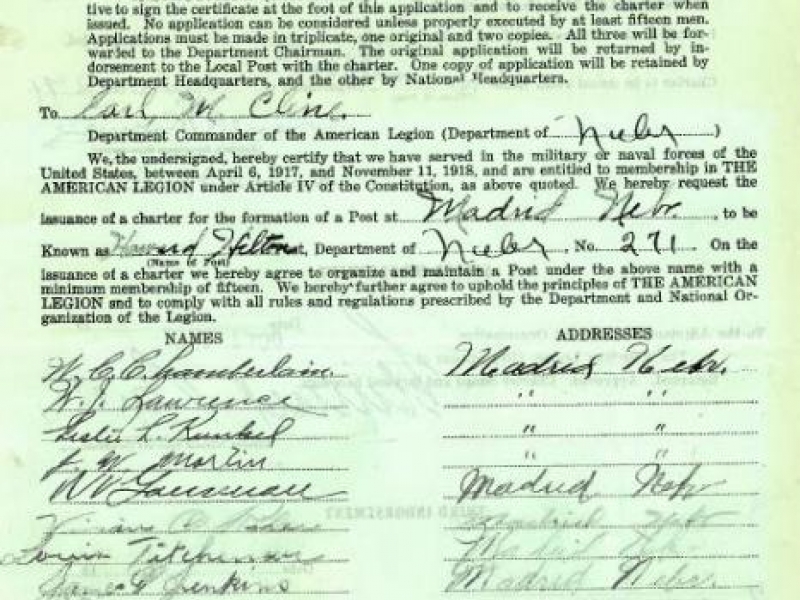 tive to sign the certificate at the foot of this application and to receive the charter when
issued. No application can be considered unless properly executed by at least fifteen men.
Applications must be made in triplicate, one original and two copies. All three will be for-
warded to the Department Chairman. The original application will be returned by in-
dorsement to the Local Post with the charter. One copy of application will be retained by
Department Headquarters, and the other by National Headquarters.
To Earl M. Cline.
Department Commander of the American Legion (Department of Nebr)
We, the undersigned, hereby certify that we have served in the military or naval forces of the
United States, between April 6, 1917, and November 11, 1918, and are entitled to membership in THE
AMERICAN LEGION under Article IV of the Constitution, as above quoted. We hereby request the
issuance of a charter for the formation of a Post at Madrid Nebr. to be
Known as Howard Post, Department of Nebr. No. 271. On the
(Name of Post)
issuance of a charter we hereby agree to organize and maintain a Post under the above name with a
minimum membership of fifteen. We hereby further agree to uphold the principles of THE AMERICAN
LEGION and to comply with all rules and regulations prescribed by the Department and National Or-
ganization of the Legion.
NAMES ADDRESSES
W. C. Chamberlain. Madrid Nebr.
W. J. Lawrence " "
Leslie L. Kunkel " "
J. W. Martin " "
Madrid Nebr
Nebr
Louis Madrid
James Jenkins Madrid Nebr.